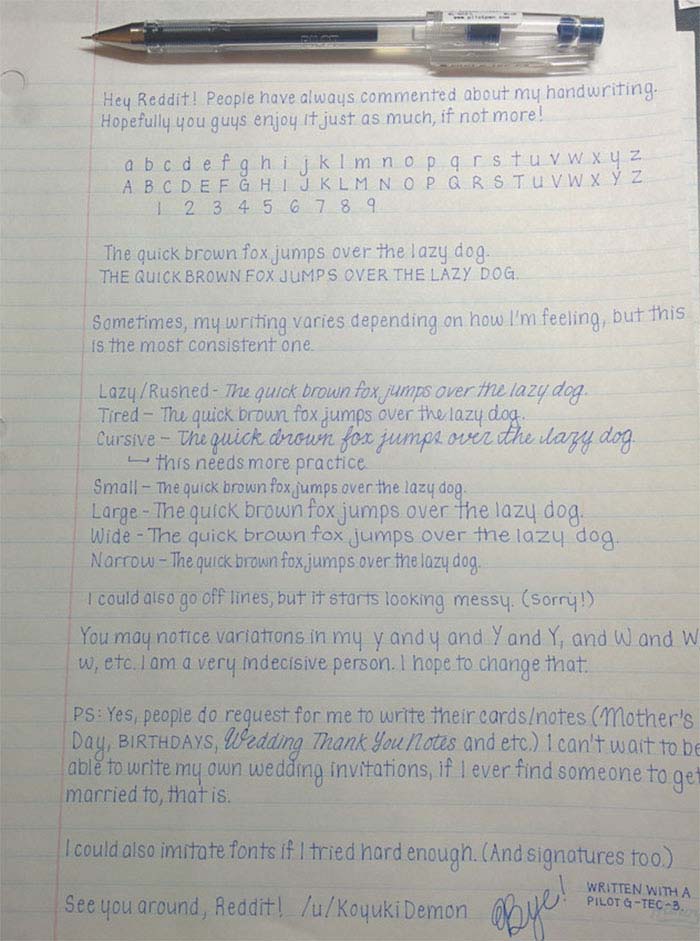 www.pilotpen.com
PILOT
Hey Reddit! People have always commented about my handwriting.
Hopefully you guys enjoy it just as much, if not more!
a b c d e f g h i j k l m n o p q r s t u v w x y z
A B C D E F G H I J K L M N O P Q R S T U V W X Y Z
1 2 3 4 5 6 7 8 9
The quick brown fox jumps over the lazy dog.
THE QUICK BROWN FOX JUMPS OVER THE LAZY DOG.
Sometimes, my writing varies depending on how I'm feeling, but this
is the most consistent one.
Lazy/Rushed - The quick brown fox jumps over the lazy dog.
Tired - The quick brown fox jumps over the lazy dog.
Cursive - The quick brown fox jumps over the lazy dog.
↳ this needs more practice.
Small - The quick brown fox jumps over the lazy dog.
Large - The quick brown fox jumps over the lazy dog.
Wide - The quick brown fox jumps over the lazy dog.
Narrow - The quick brown fox jumps over the lazy dog.
I could also go off lines, but it starts looking messy. (sorry!)
You may notice variations in my y and y and Y and Y, and W and W
w, etc. I am a very indecisive person. I hope to change that.
PS: Yes, people do request for me to write their cards/notes (Mother's
Day, BIRTHDAYS, Wedding Thank You Notes and etc.) I can't wait to be
able to write my own wedding invitations, if I ever find someone to get
married to, that is.
I could also imitate fonts if I tried hard enough. (And signatures too.)
See you around, Reddit! /u/KoyukiDemon Bye!
WRITTEN WITH A
PILOT G-TEC-3.